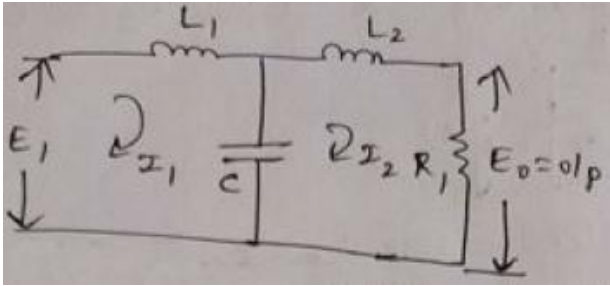 L1 L2
E1 I1 C I2 R1 E0=o/p